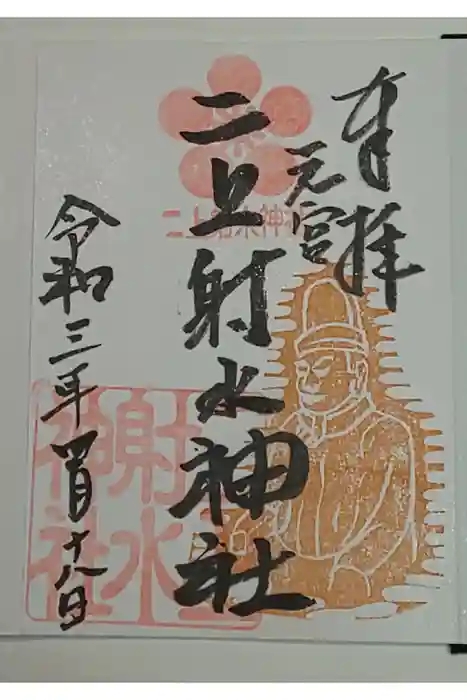 奉拝
元宮
二上射水神社
二上射水神社
射水
神社
令和三年四月十八日